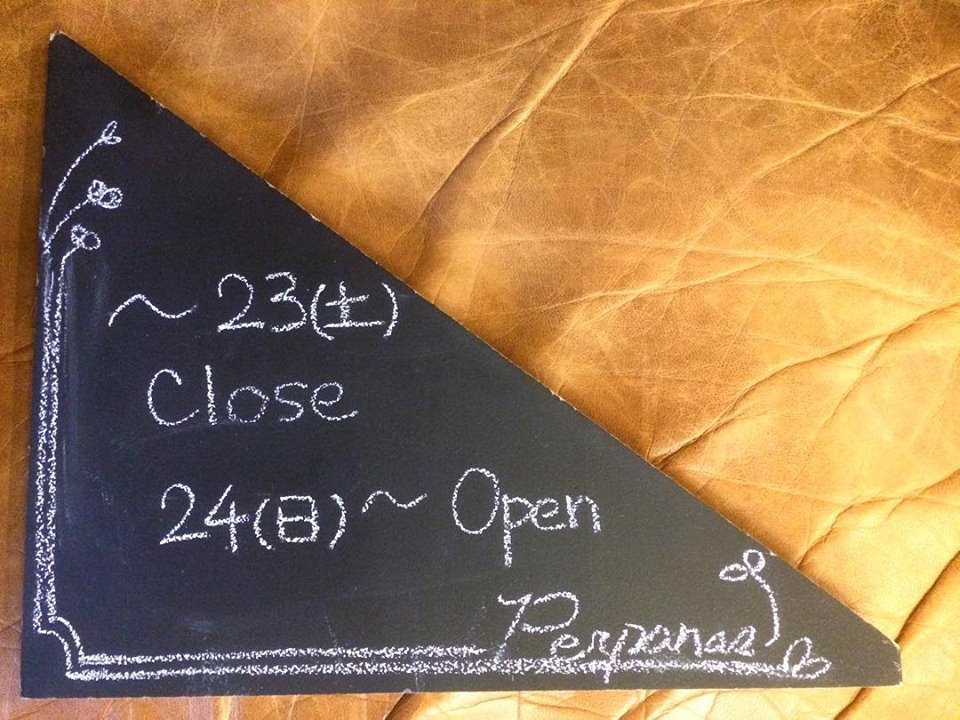 ～23(土)
Close
24(日)～ Open
Perpanas